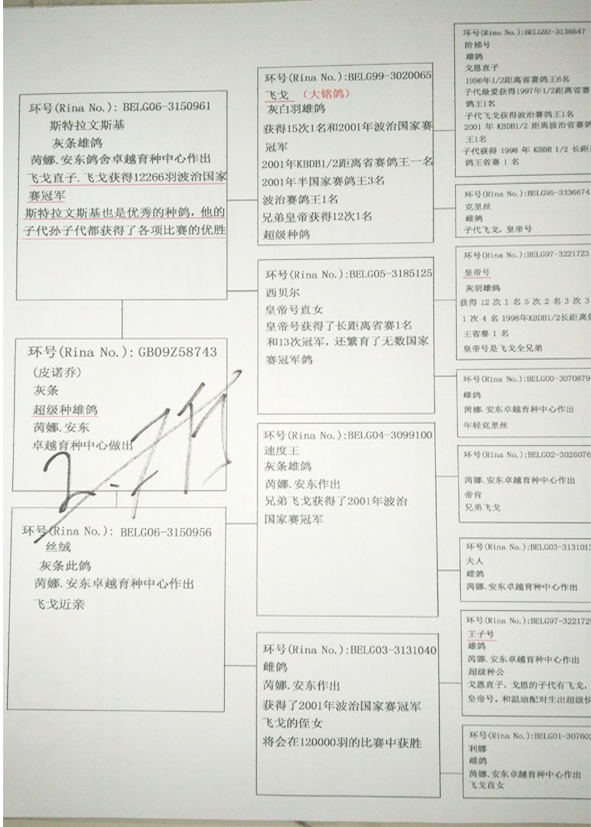 环号(Rina No.): BELG06-3150961
斯特拉文斯基
灰条雄鸽
芮娜.安东鸽舍卓越育种中心作出
飞戈直子.飞戈获得12266羽波治国家
赛冠军
斯特拉文斯基也是优秀的种鸽,他的
子代孙子代都获得了各项比赛的优胜
环号(Rina No.): GB09Z58743
(皮诺乔)
灰条
超级种雄鸽
芮娜.安东
卓越育种中心做出
环号(Rina No.): BELG06-3150956
丝绒
灰条此鸽
芮娜.安东卓越育种中心作出
飞戈近亲
环号(Rina No.):BELG99-3020065
飞戈 (大铭鸽)
灰白羽雄鸽
获得15次1名和2001年波治国家赛
冠军
2001年KBDB1/2距离省赛鸽王一名
2001年半国家赛鸽王3名
波治赛鸽王1名
兄弟皇帝获得12次1名
超级种鸽
环号(Rina No.):BELG05-3185125
西贝尔
皇帝号直女
皇帝号获得了长距离省赛1名
和13次冠军,还繁育了无数国家
赛冠军鸽
环号(Rina No.):BELG04-3099100
速度王
灰条雄鸽
芮娜.安东作出
兄弟飞戈获得了2001年波治
国家赛冠军
环号(Rina No.):BELG03-3131040
雌鸽
芮娜.安东作出
获得了2001年波治国家赛冠军
飞戈的侄女
将会在120000羽的比赛中获胜
环号(Rina No.):BELG92-3138647
阶梯号
雄鸽
戈恩直子
1996年1/2距离省赛鸽王6名
子代最爱获得1997年1/2距离省赛
鸽王1名
子代飞戈获得波治赛鸽王1名
2001 年 KBDB1/2 距离波治省赛鸽
王1名
子代获得 1998 年 KBDB 1/2 长距
鸽王省赛 1 名
环号(Rina No.):BELG95-3336674
克里丝
雌鸽
子代飞戈,皇帝号
环号(Rina No.):BELG97-3221723
皇帝号
灰羽雄鸽
获得 12 次 1 名 5 次 2 名 3 次 3
1 次 4 名 1998年KBDB1/2长距离
王省赛 1 名
皇帝号是飞戈全兄弟
环号(Rina No.):BELG00-3070879
雌鸽
芮娜.安东卓越育种中心作出
年轻克里丝
环号(Rina No.):BELG02-3026076
芮娜.安东卓越育种中心作出
帝肯
兄弟飞戈
环号(Rina No.):BELG03-313101
夫人
雌鸽
芮娜.安东卓越育种中心作出
环号(Rina No.):BELG97-322172
王子号
雄鸽
芮娜.安东卓越育种中心作出
超级种公
戈恩直子,戈恩的子代有飞戈,
皇帝号。和温迪配对生出超级快
环号(Rina No.):BELG01-307602
利娜
雌鸽
芮娜.安东卓越育种中心作出
飞戈直女